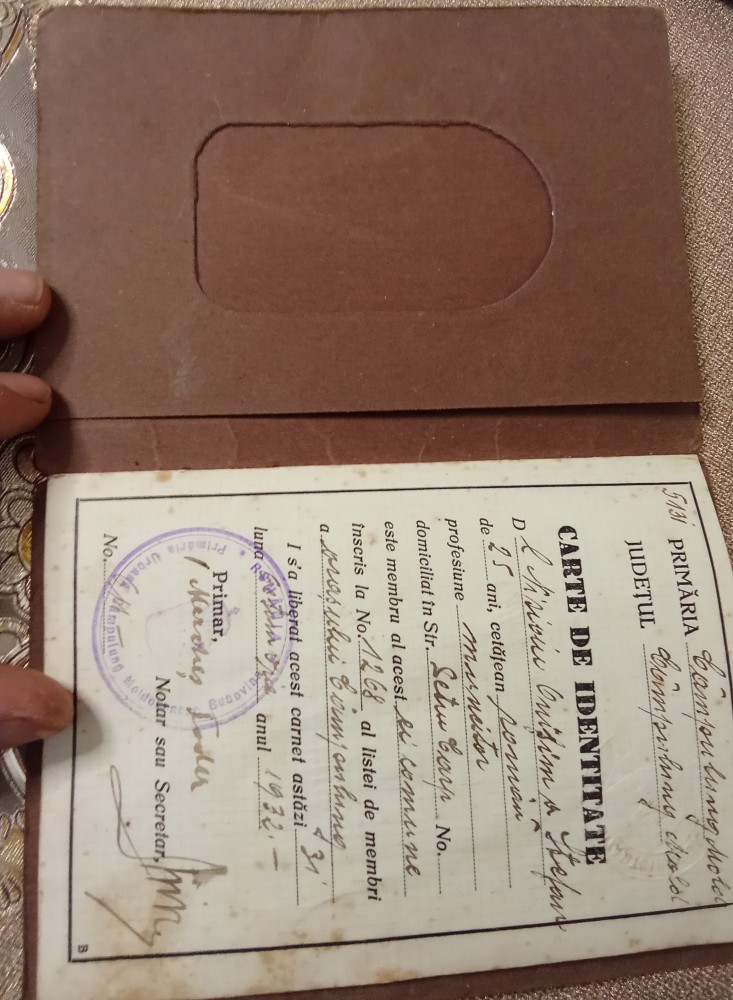 5131 PRIMĂRIA Câmpulung Mold
JUDEȚUL Câmpulung Mold
CARTE DE IDENTITATE
D Ștefan
de 25 ani, cetățean român
profesiune muncitor
domiciliat în Str. No.
este membru al acestei comune
înscris la No. 1268 al listei de membri
a orașului Câmpulung
I s'a liberat acest carnet astăzi 31
luna anul 1932.—
Primar,
Notar sau Secretar,
No.
ROMÂNIA
Primăria Urbană Câmpulung Moldovenesc Bucovina
B